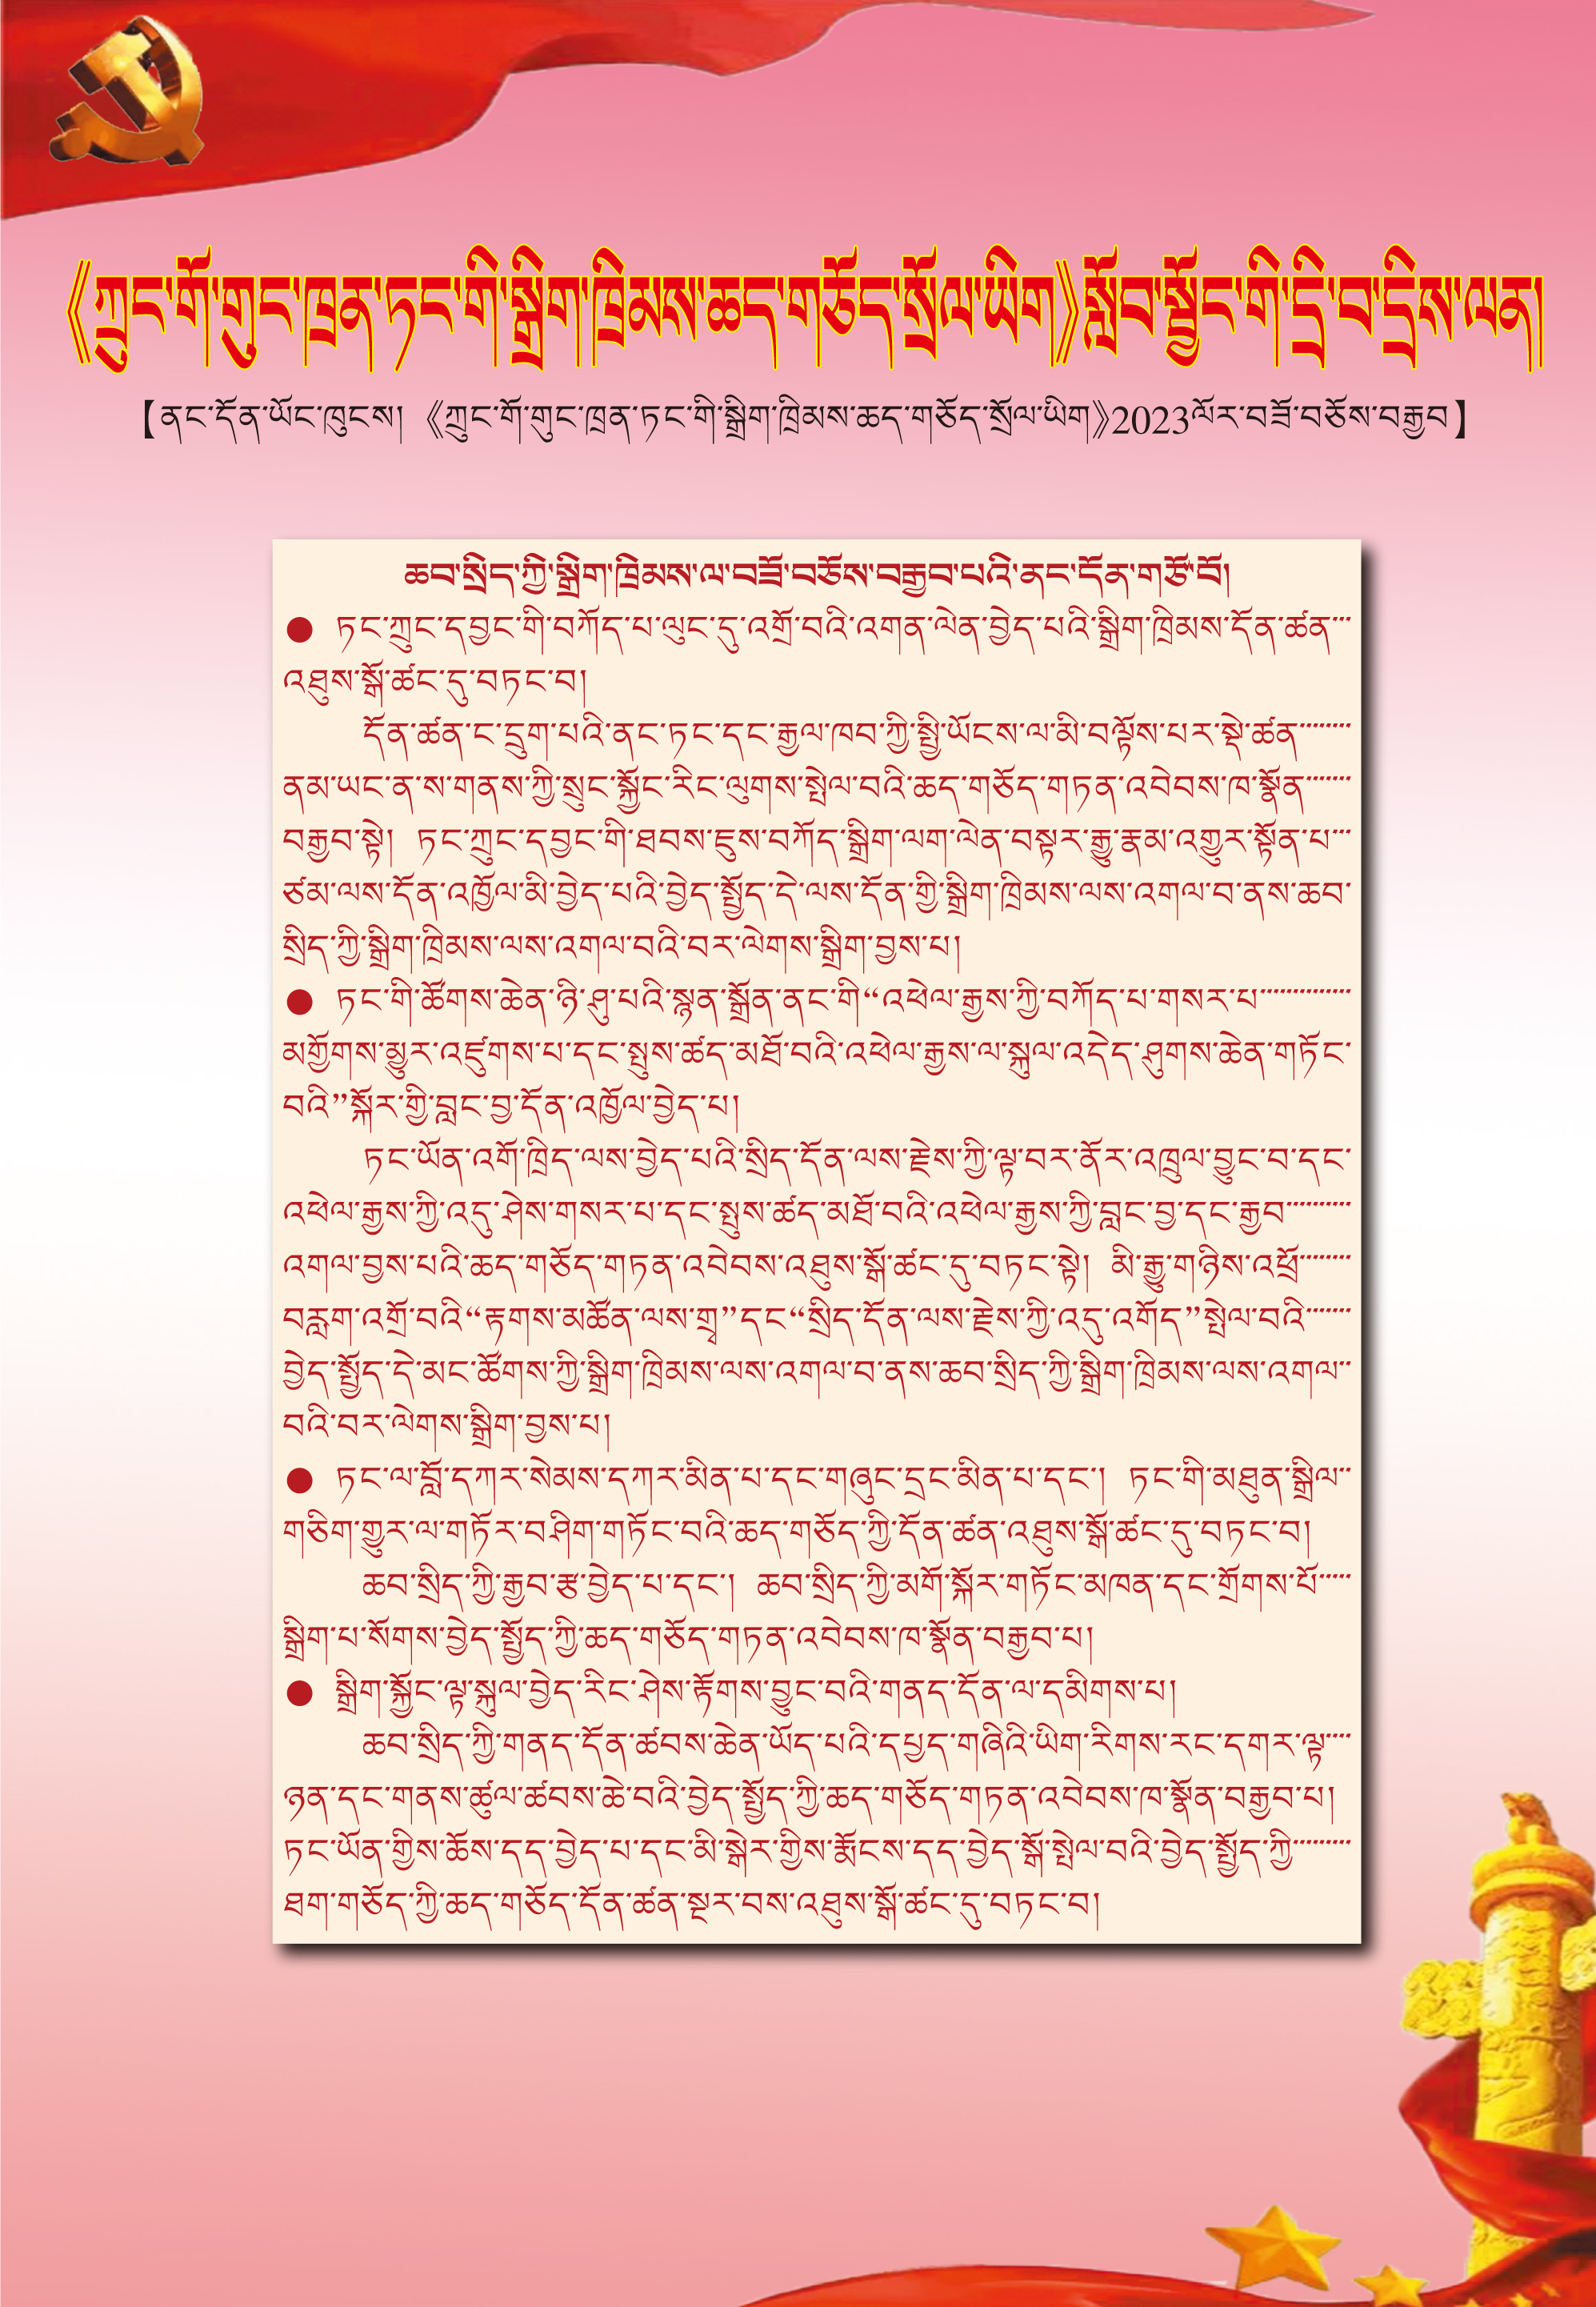 《ཀྲུང་གོ་གུང་ཁྲན་ཏང་གི་སྒྲིག་ཁྲིམས་ཆད་གཅོད་སྲོལ་ཡིག》སློབ་སྦྱོང་གི་དྲི་བ་དྲིས་ལན།
【ནང་དོན་ཡོང་ཁུངས། 《ཀྲུང་གོ་གུང་ཁྲན་ཏང་གི་སྒྲིག་ཁྲིམས་ཆད་གཅོད་སྲོལ་ཡིག》2023ལོར་བཟོ་བཅོས་བརྒྱབ】
ཆབ་སྲིད་ཀྱི་སྒྲིག་ཁྲིམས་ལ་བཟོ་བཅོས་བརྒྱབ་པའི་ནང་དོན་གཙོ་བོ།
● ཏང་ཀྲུང་དབྱང་གི་བཀོད་པ་ལུང་དུ་འགྲོ་བའི་འགན་ལེན་བྱེད་པའི་སྒྲིག་ཁྲིམས་དོན་ཚན་
འཐུས་སྒོ་ཚང་དུ་བཏང་བ།
དོན་ཚན་ང་དྲུག་པའི་ནང་ཏང་དང་རྒྱལ་ཁབ་ཀྱི་སྤྱི་ཡོངས་ལ་མི་བལྟོས་པར་སྡེ་ཚན་
ནམ་ཡང་ན་ས་གནས་ཀྱི་སྲུང་སྐྱོང་རིང་ལུགས་སྤེལ་བའི་ཆད་གཅོད་གཏན་འབེབས་ཁ་སྣོན་
བརྒྱབ་སྟེ། ཏང་ཀྲུང་དབྱང་གི་ཐབས་ཇུས་བཀོད་སྒྲིག་ལག་ལེན་བསྟར་རྒྱུ་རྣམ་འགྱུར་སྟོན་པ་
ཙམ་ལས་དོན་འཁྱོལ་མི་བྱེད་པའི་བྱེད་སྤྱོད་དེ་ལས་དོན་གྱི་སྒྲིག་ཁྲིམས་ལས་འགལ་བ་ནས་ཆབ་
སྲིད་ཀྱི་སྒྲིག་ཁྲིམས་ལས་འགལ་བའི་བར་ལེགས་སྒྲིག་བྱས་པ།
● ཏང་གི་ཚོགས་ཆེན་ཉི་ཤུ་པའི་སྙན་སྒྲོན་ནང་གི“འཕེལ་རྒྱས་ཀྱི་བཀོད་པ་གསར་པ་
མགྱོགས་མྱུར་འཛུགས་པ་དང་སྤུས་ཚད་མཐོ་བའི་འཕེལ་རྒྱས་ལ་སྐུལ་འདེད་ཤུགས་ཆེན་གཏོང་
བའི”སྐོར་གྱི་བླང་བྱ་དོན་འཁྱོལ་བྱེད་པ།
ཏང་ཡོན་འགོ་ཁྲིད་ལས་བྱེད་པའི་སྲིད་དོན་ལས་རྗེས་ཀྱི་ལྟ་བར་ནོར་འཁྲུལ་བྱུང་བ་དང་
འཕེལ་རྒྱས་ཀྱི་འདུ་ཤེས་གསར་པ་དང་སྤུས་ཚད་མཐོ་བའི་འཕེལ་རྒྱས་ཀྱི་བླང་བྱ་དང་རྒྱབ་
འགལ་བྱས་པའི་ཆད་གཅོད་གཏན་འབེབས་འཐུས་སྒོ་ཚང་དུ་བཏང་སྟེ། མི་རྒྱུ་གཉིས་འཕྲོ་
བརླག་འགྲོ་བའི“རྟགས་མཚོན་ལས་གྲྭ”དང“སྲིད་དོན་ལས་རྗེས་ཀྱི་འདུ་འགོད”སྤེལ་བའི་
བྱེད་སྤྱོད་དེ་མང་ཚོགས་ཀྱི་སྒྲིག་ཁྲིམས་ལས་འགལ་བ་ནས་ཆབ་སྲིད་ཀྱི་སྒྲིག་ཁྲིམས་ལས་འགལ་
བའི་བར་ལེགས་སྒྲིག་བྱས་པ།
● ཏང་ལ་བློ་དཀར་སེམས་དཀར་མིན་པ་དང་གཞུང་དྲང་མིན་པ་དང་། ཏང་གི་མཐུན་སྒྲིལ་
གཅིག་གྱུར་ལ་གཏོར་བཤིག་གཏོང་བའི་ཆད་གཅོད་ཀྱི་དོན་ཚན་འཐུས་སྒོ་ཚང་དུ་བཏང་བ།
ཆབ་སྲིད་ཀྱི་རྒྱབ་རྩ་བྱེད་པ་དང་། ཆབ་སྲིད་ཀྱི་མགོ་སྐོར་གཏོང་མཁན་དང་གྲོགས་པོ་
སྒྲིག་པ་སོགས་བྱེད་སྤྱོད་ཀྱི་ཆད་གཅོད་གཏན་འབེབས་ཁ་སྣོན་བརྒྱབ་པ།
● སྒྲིག་སྐྱོང་ལྟ་སྐུལ་བྱེད་རིང་ཤེས་རྟོགས་བྱུང་བའི་གནད་དོན་ལ་དམིགས་པ།
ཆབ་སྲིད་ཀྱི་གནད་དོན་ཚབས་ཆེན་ཡོད་པའི་དཔྱད་གཞིའི་ཡིག་རིགས་རང་དགར་ལྟ་
ཉན་དང་གནས་ཚུལ་ཚབས་ཆེ་བའི་བྱེད་སྤྱོད་ཀྱི་ཆད་གཅོད་གཏན་འབེབས་ཁ་སྣོན་བརྒྱབ་པ།
ཏང་ཡོན་གྱིས་ཆོས་དད་བྱེད་པ་དང་མི་སྒེར་གྱིས་རྨོངས་དད་བྱེད་སྒོ་སྤེལ་བའི་བྱེད་སྤྱོད་ཀྱི་
ཐག་གཅོད་ཀྱི་ཆད་གཅོད་དོན་ཚན་སྔར་བས་འཐུས་སྒོ་ཚང་དུ་བཏང་བ།